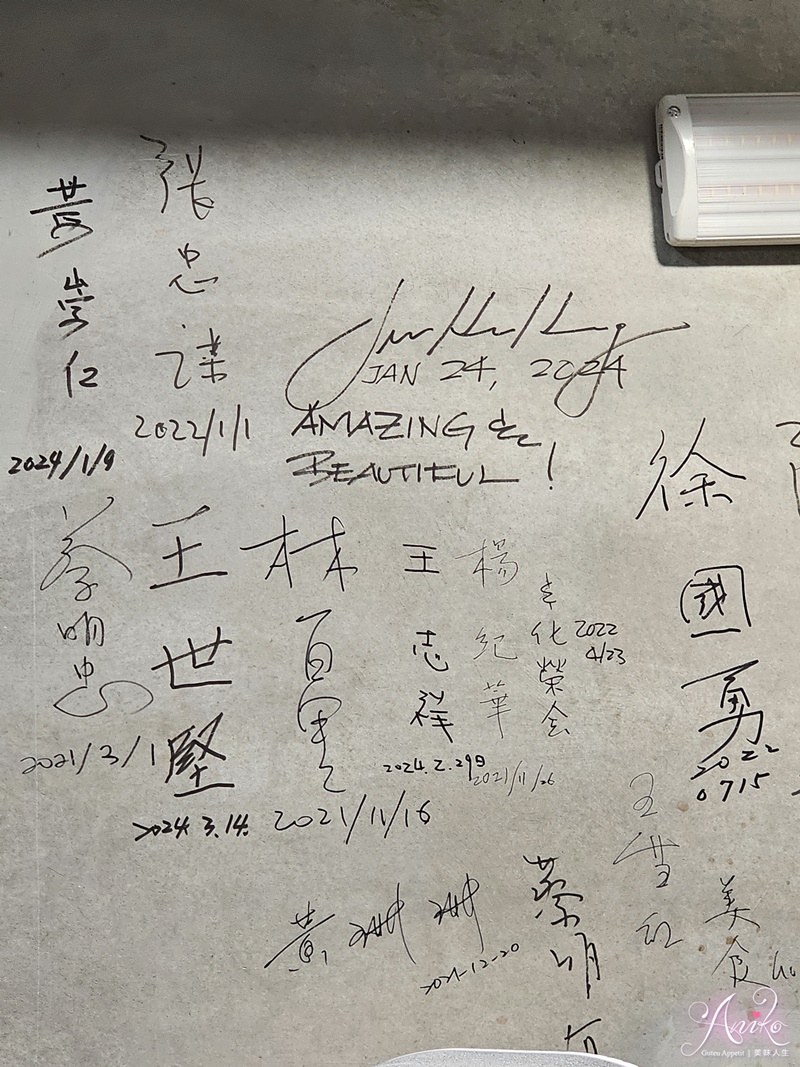 黃崇仁
2024/1/9
張忠謀
2022/1/1
JAN 24, 2024
AMAZING &
BEAUTIFUL!
蔡明忠
2021/3/1
王世堅
2024.3.14.
林百里
2021/11/16
王志祥
2024.2.29日
楊紀華
2021/11/26
榮
2022
4/23
徐國勇
2022
0715
黃珊珊
2021-12-20
蔡明
王雪紅
美食
Aniko
Guten Appetit | 美味人生